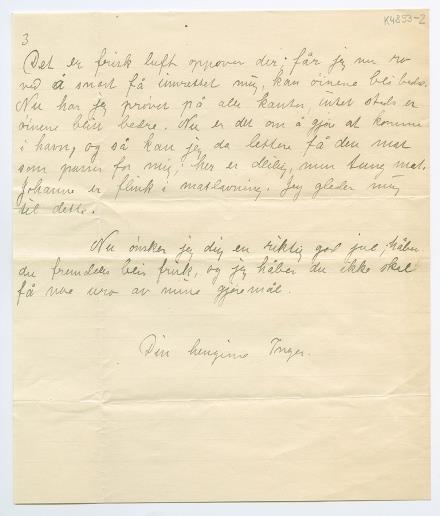 K4853-2
3
Det er frisk luft oppover der; får jeg nu ro
ved å snart få innrettet mig, kan øinene bli bedre.
Nu har jeg prøvet på alle kanter, intet sted er
øinene blitt bedre. Nu er det om å gjøre at komme
i havn, og så kan jeg da lettere få den mat
som passer for mig; her er deilig, men tung mat.
Johanne er flink i matlavning. Jeg gleder mig
til dette.
Nu ønsker jeg dig en riktig god jul, håber
du fremdeles blir frisk, og jeg håber du ikke skal
få noe uro av mine gjøremål.
Din hengivne Inger.